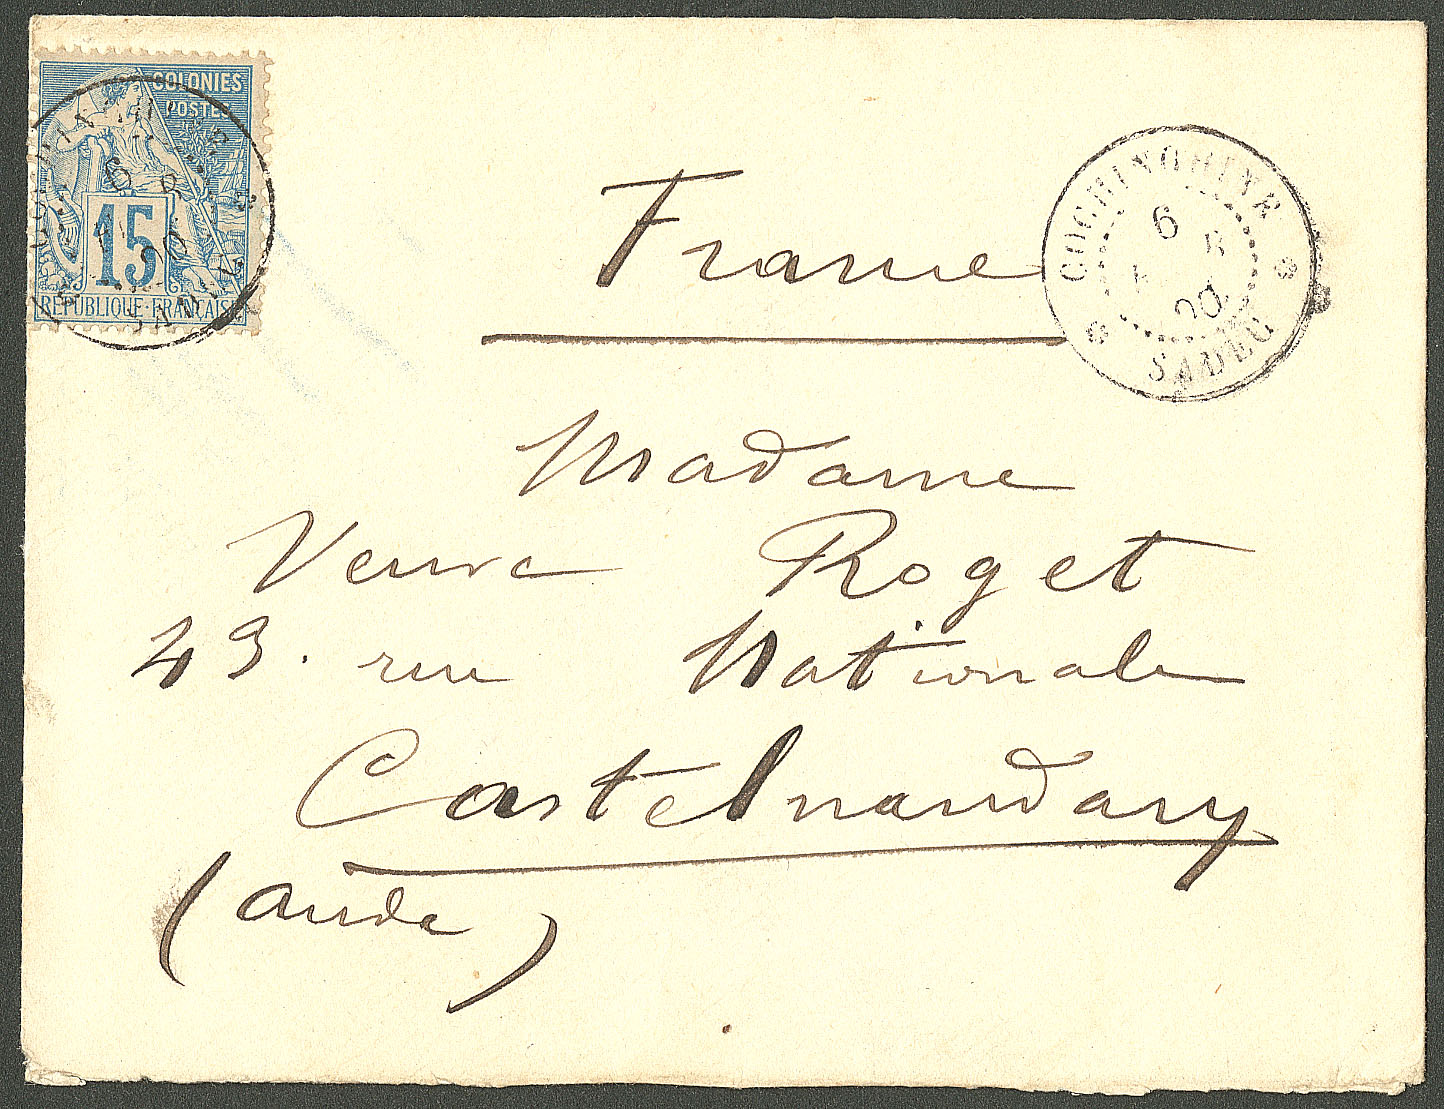 COLONIES
POSTES
15
RÉPUBLIQUE FRANÇAISE
COCHINCHINE
6
00
SADEC
France
Madame
Veuve Roget
43. rue Nationale
Castelnaudary
(Aude)